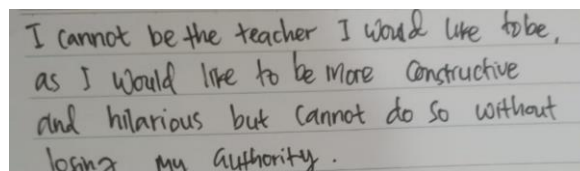 I cannot be the teacher I would like to be,
as I would like to be more constructive
and hilarious but cannot do so without
losing my authority.